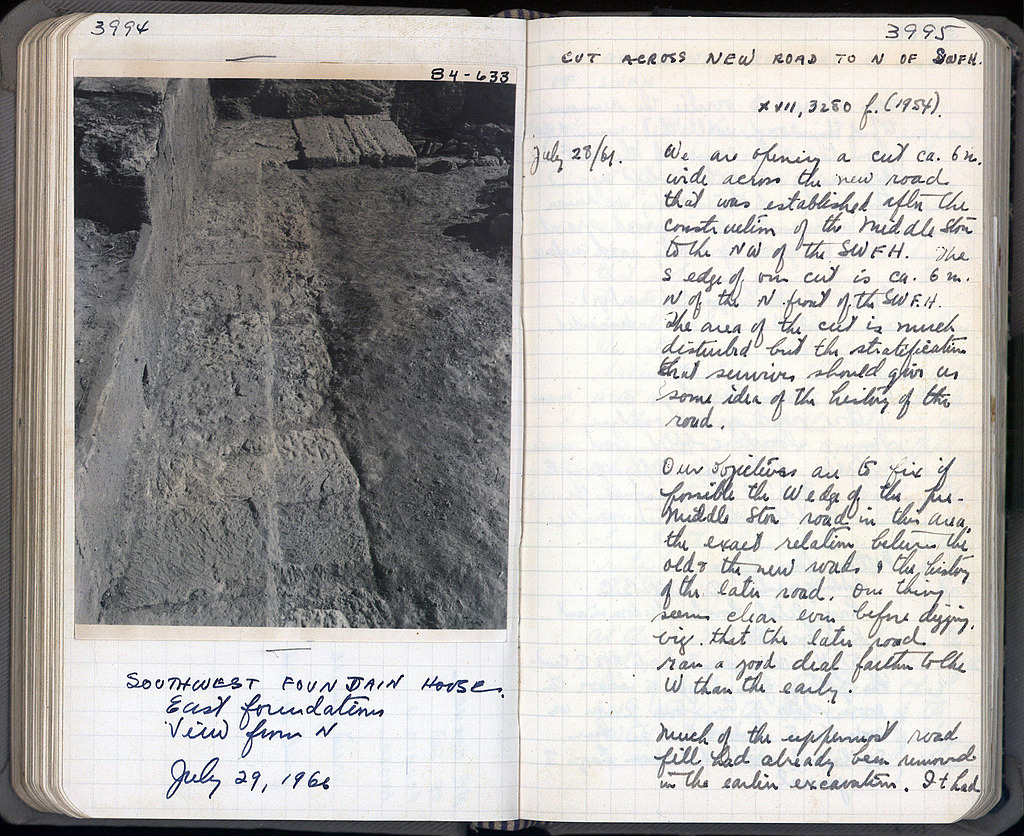 3994
84-633
SOUTHWEST FOUNTAIN HOUSE.
East foundations
View from N
July 29, 1966
3995
CUT ACROSS NEW ROAD TO N OF SWFH.
XVII, 3280 f. (1954).
July 28/61.
We are opening a cut ca. 6 m.
wide across the new road
that was established after the
construction of the Middle Stoa
to the NW of the SWFH. The
S edge of our cut is ca. 6 m.
N of the N front of the SWFH.
The area of the cut is much
disturbed but the stratification
that survives should give us
some idea of the history of the
road.
Our objectives are to fix if
possible the W edge of the pre-
Middle Stoa road in this area,
the exact relation between the
old & the new roads & the history
of the later road. One thing
seems clear even before digging,
viz. that the later road
ran a good deal farther to the
W than the early.
Much of the uppermost road
fill had already been removed
in the earlier excavation. It had